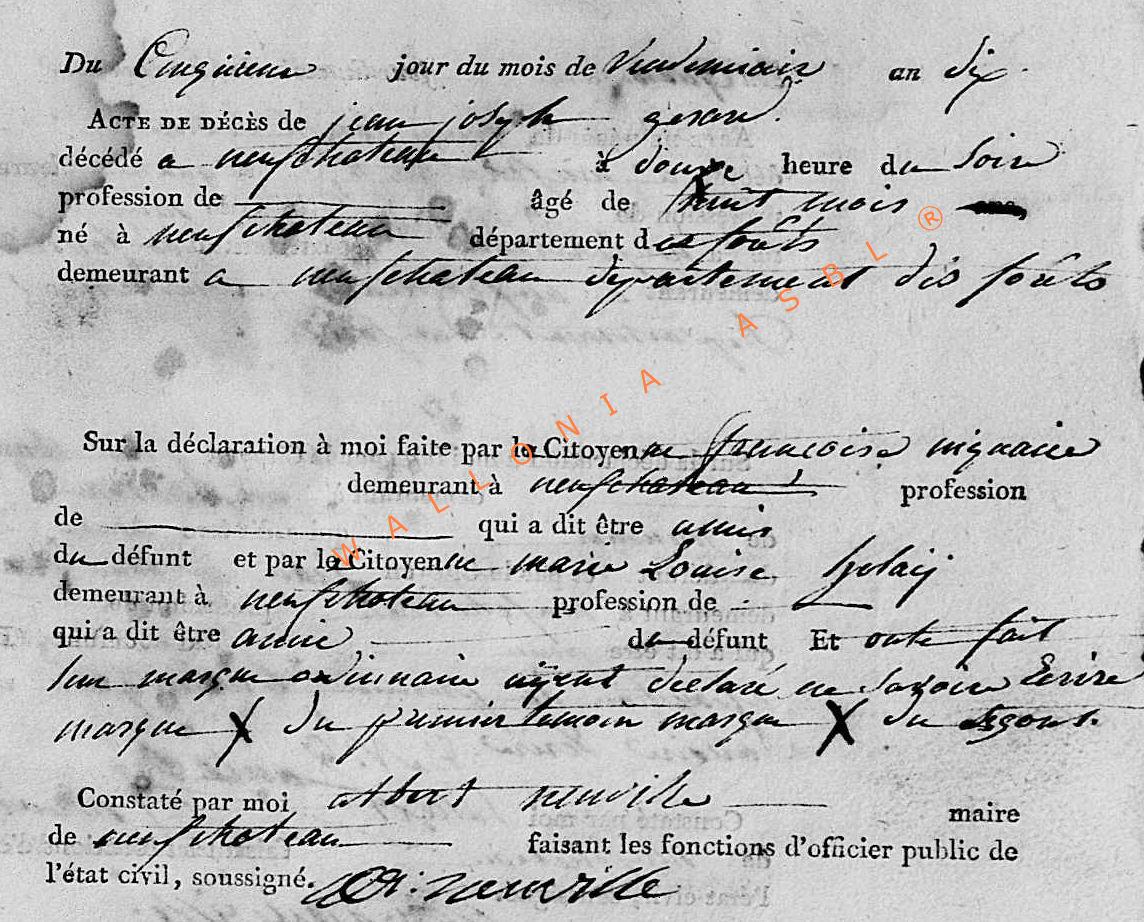 Du Cinquieme jour du mois de Vendemiair an dix.
ACTE DE DÉCÈS de jean joseph gerar.
décédé a neufchateau à douze heure du Soire
profession de âgé de huit mois
né à neufchateau département des forêts
demeurant a neufchateau departement des forêts
Sur la déclaration à moi faite par la Citoyenne francoise
demeurant à neufchateau profession
de qui a dit être amis
du défunt et par la Citoyenne marie Louise
demeurant à neufchateau profession de
qui a dit être amie du défunt Et onte fait
leur marque ordinnaire aÿent declaré ne Savoire Ecrire
marque X du premier temoin marque X du segont.
Constaté par moi albert neuville maire
de neufchateau faisant les fonctions d'officier public de
l'état civil, soussigné. A: neuville
WALLONIA ASBL ®